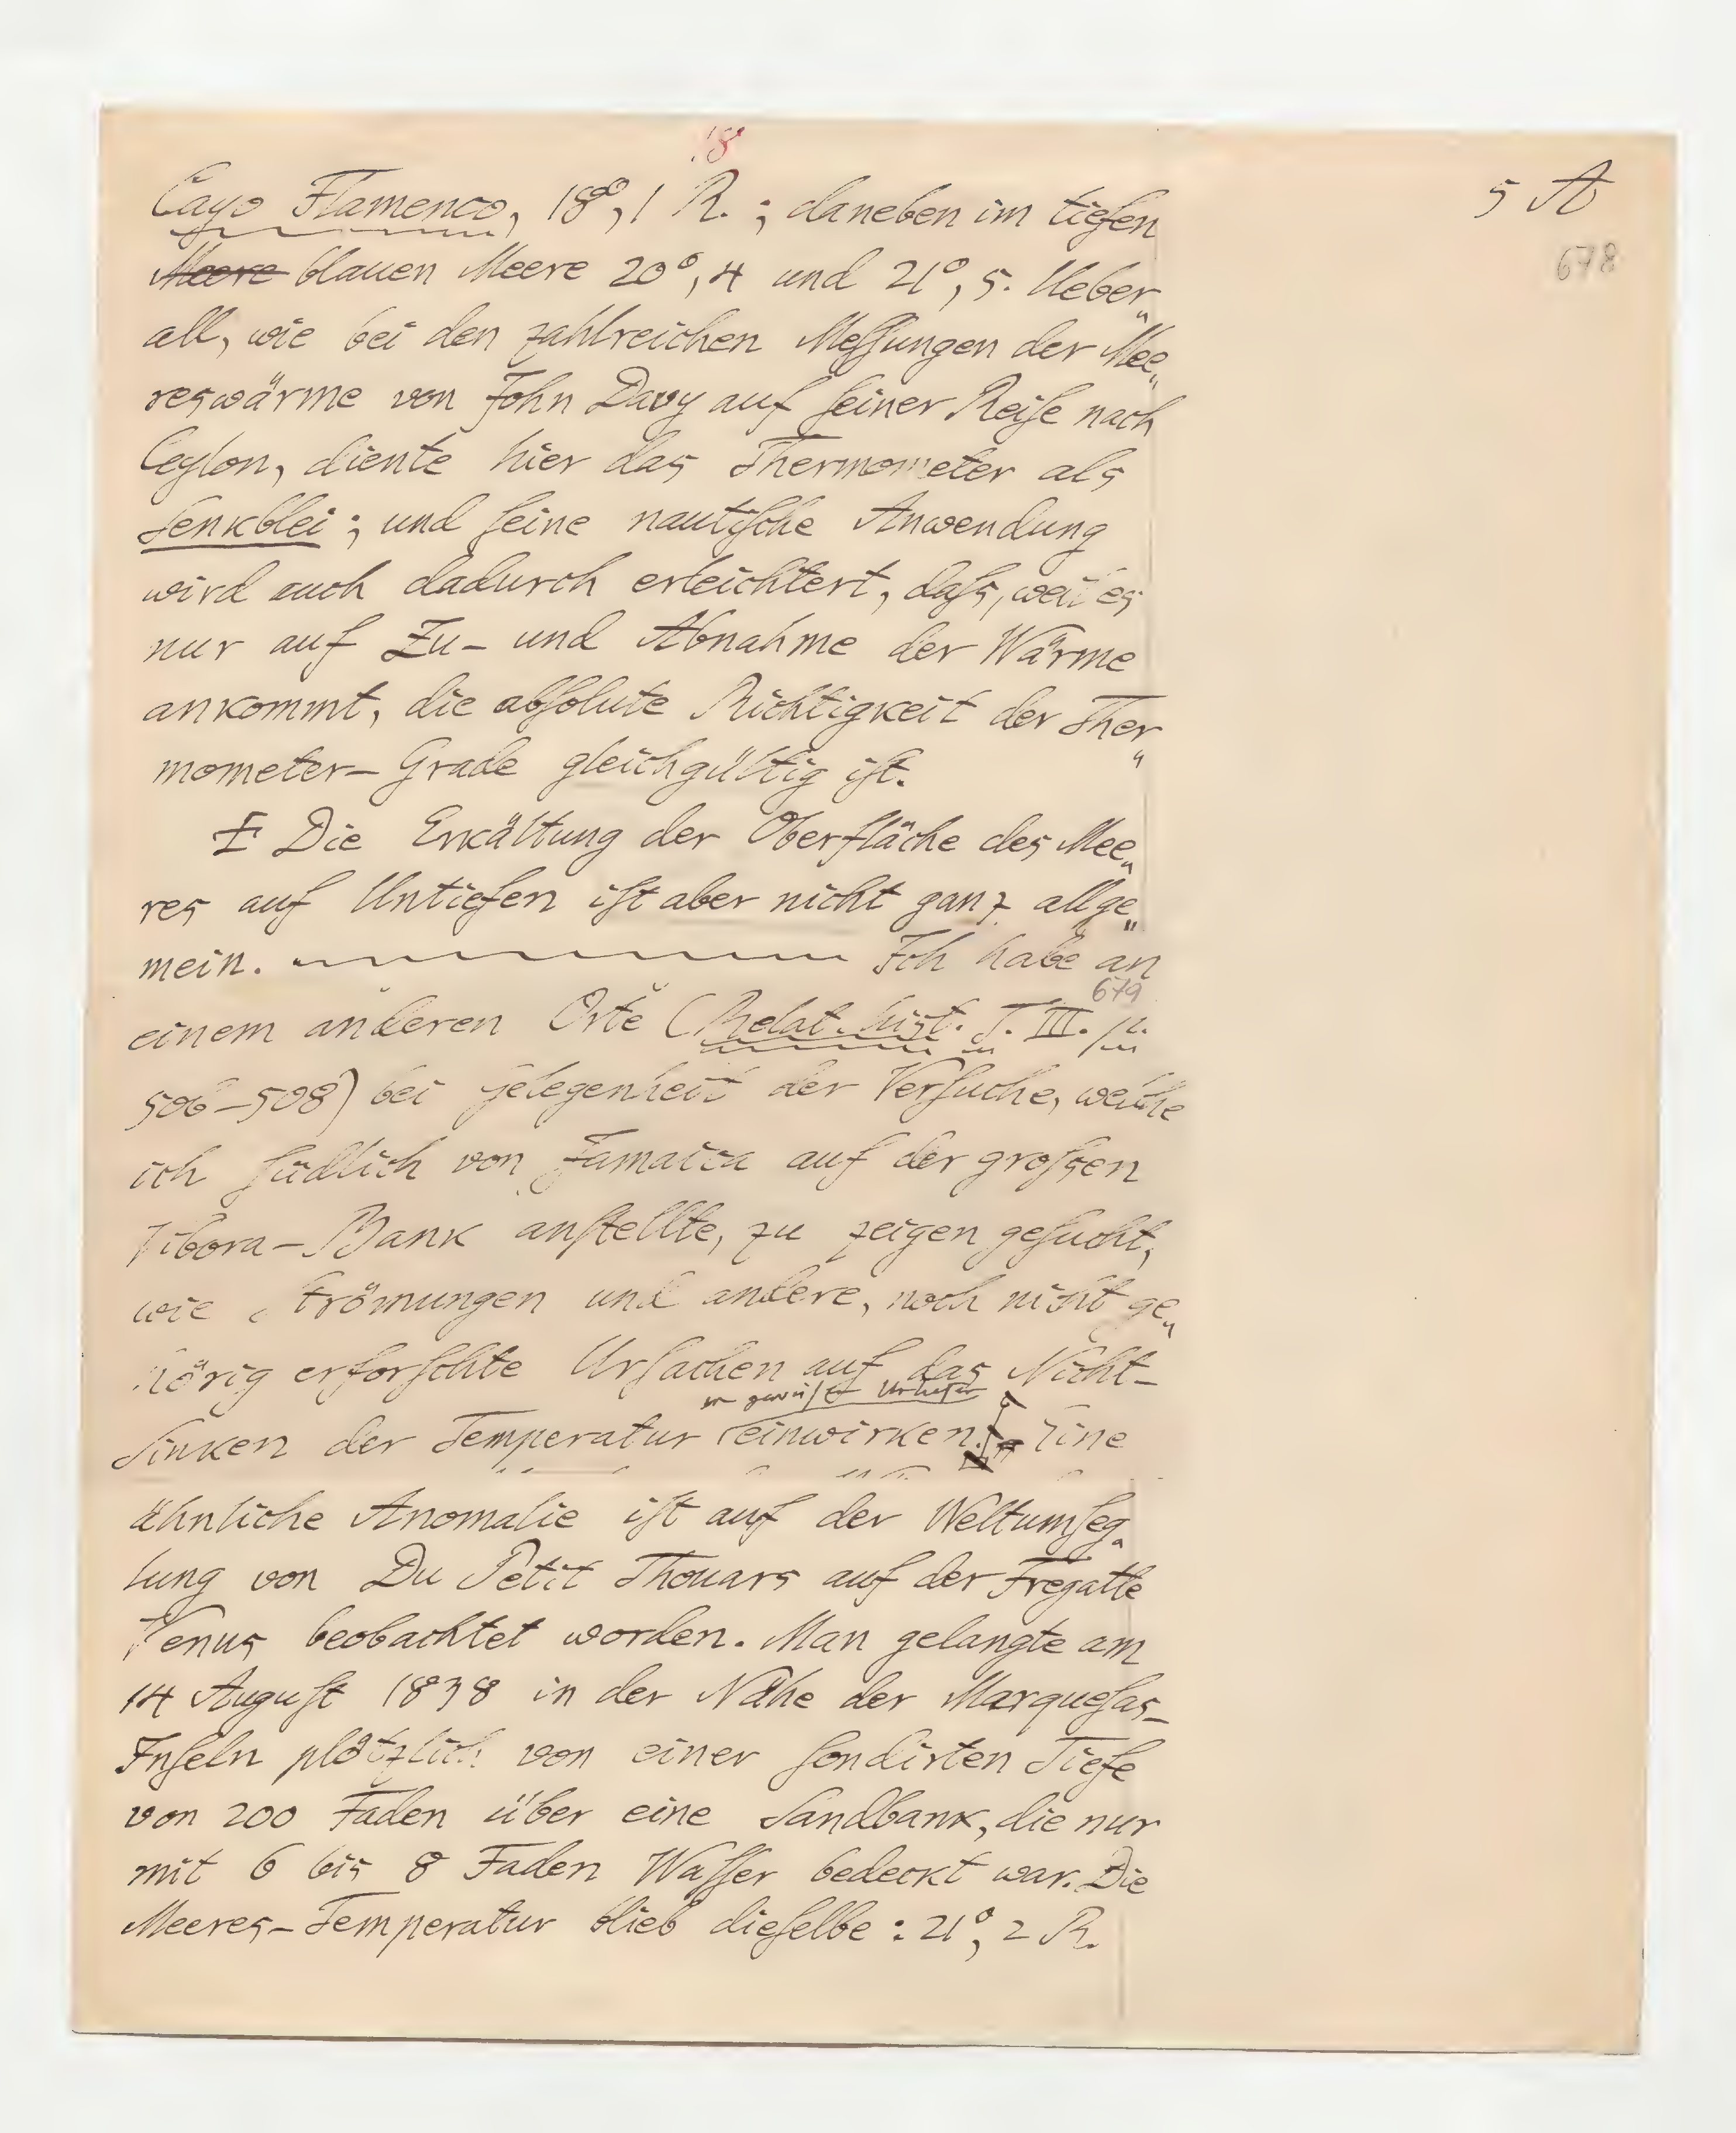 18
5 A
678
Cayo Flamenco, 18°,1 R.; daneben im tiefen
Meere blauen Meere 20°,4 und 21°,5. Ueber„
all, wie bei den zahlreichen Meſſungen der Mee„
reswärme von John Davy auf ſeiner Reiſe nach
Ceylon, diente hier das Thermometer als
Senkblei; und ſeine nautiſche Anwendung
wird auch dadurch erleichtert, daſs, weil es
nur auf Zu- und Abnahme der Wärme
ankommt, die abſolute Richtigkeit der Ther„
mometer-Grade gleichgültig iſt.
Die Erkältung der Oberfläche des Mee„
res auf Untiefen iſt aber nicht ganz allge„
mein. Ich habe an
679
einem anderen Orte (Relat. hist. T. III. p.
506-508) bei Gelegenheit der Verſuche, welche
ich ſüdlich von Jamaica auf der groſsen
Vibora-Bank anſtellte, zu zeigen geſucht,
wie Strömungen und andere, noch nicht ge„
hörig erforſchte Urſachen auf das Nicht-
Sinken der Temperatur einwirken. Eine
ähnliche Anomalie iſt auf der Weltumſeg„
lung von Du Petit Thouars auf der Fregatte
Venus beobachtet worden. Man gelangte am
14 Auguſt 1838 in der Nähe der Marqueſas-
Inſeln plötzlich von einer ſondirten Tiefe
von 200 Faden über eine Sandbank, die nur
mit 6 bis 8 Faden Waſſer bedeckt war. Die
Meeres-Temperatur blieb dieſelbe: 21°,2 R.